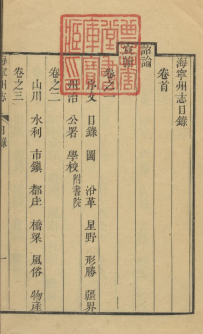 海寧州志目錄
卷首
諭
卷之一
序文 目錄 圖 沿革 星野 形勝 疆界
州治 公署 學校附書院
卷之二
山川 水利 市鎮 都庄 橋梁 風俗 物產
卷之三
海寧州志 目錄